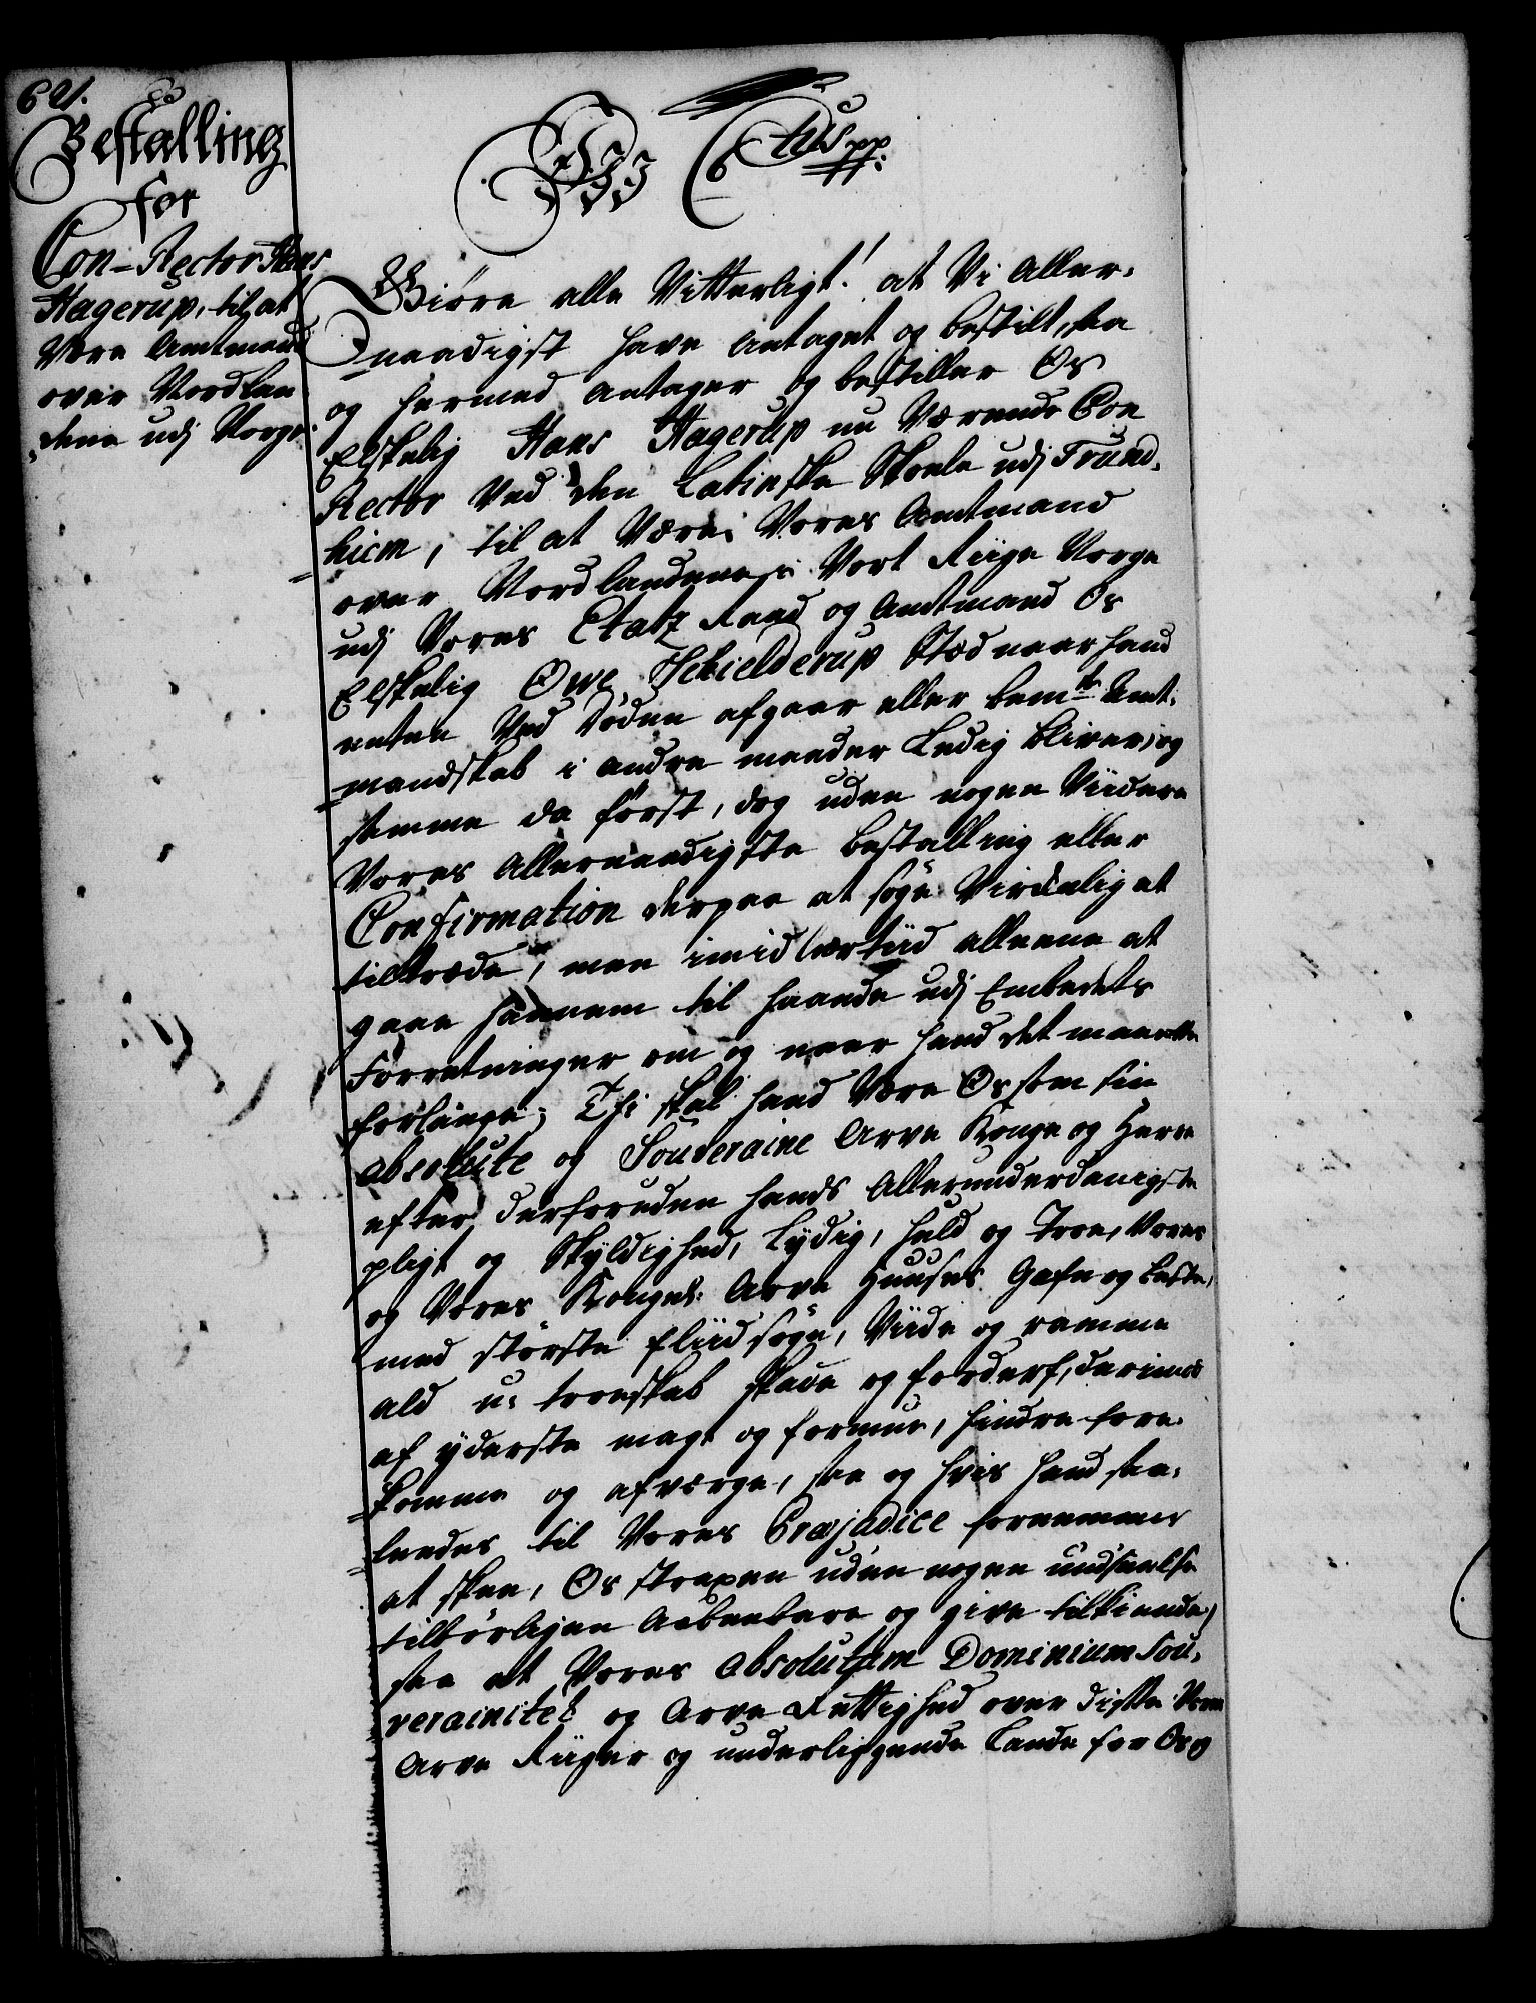 621.
Bestalling
for
Con-Rector Hans
Hagerup, til at
Være Amtmand
over Nordlan-
dene udj Norge.
Wii Chr: 6tus pp:
Giøre alle Vitterligt! at Vi Aller-
naadigst have Antaget og bestilt, saa
og hermed Antager og bestiller Os
Elskelig Hans Hagerup nu Værende Con
Rector Ved den Latinske Skole udj Trund-
hiem, til at Være Vores Amtmand
over Nordlandene i Vort Riige Norge
udj Vores Etatz Raad og Amtmand Os
Elskelig Owe Schielderup Stæd naar hand
enten Ved Døden afgaar eller bemte Amt-
mandskab i andre maader Ledig bliver, og
samme da først, dog uden nogen Viidere
Vores Allernaadigste bestalling eller
Confirmation derpaa at søge Virkelig at
tiltræde, men imidlertiid alleene at
gaae hannem til haande udj Embedets
Forretninger om og naar hand det maatte
forlange; Thi skal hand Være Os som sin
absolute og Souveraine Arve Konge og Herre
efter derforuden hands Allerunderdanigste
pligt og Skyldighed, Lydig, huld og Troe, Vores
og Vores Kongel: Arve Huuses Gafn og beste,
med største fliid søge, Viide og ramme
ald u-troeskab skade og forderf, derimod
af yderste magt og formue, hindre fore-
komme og afværge, saa og hvis hand saa-
leedes til Vores Præjudice fornemmer
at skee, Os straxen uden nogen undseelse
tilbørligen Aabenbare og give tilkiende,
saa at Vores absolutum Dominium Sou-
verainitet og Arve Rettighed over disse Vore
Arve Riiger og underliggende Lande for Os og